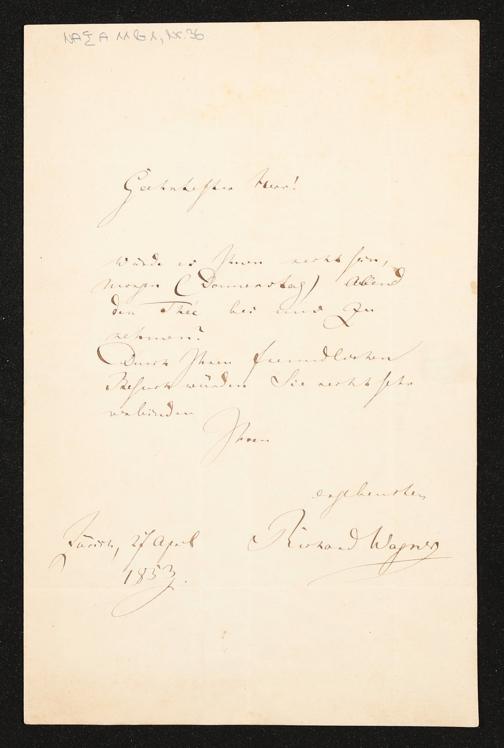 NAE A M G 1, Nr. 36
Geehrtester Herr!
Würde es Ihnen recht sein,
morgen (Donnerstag) Abend
den Thée bei uns zu
nehmen?
Durch Ihren freundlichen
Besuch würden Sie recht sehr
verbinden
Ihren
ergebensten
Richard Wagner
Zürich, 27 April
1853.